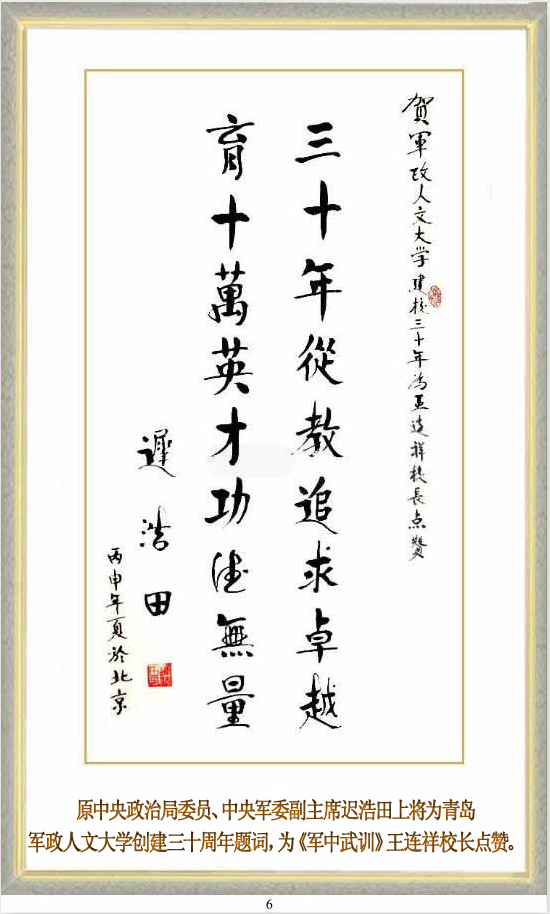 賀軍政人文大学建校三十年為王連祥校長点贊
三十年從教追求卓越
育十萬英才功德無量
遲浩田
丙申年夏於北京
原中央政治局委员、中央军委副主席迟浩田上将为青岛
军政人文大学创建三十周年题词，为《军中武训》王连祥校长点赞。
6